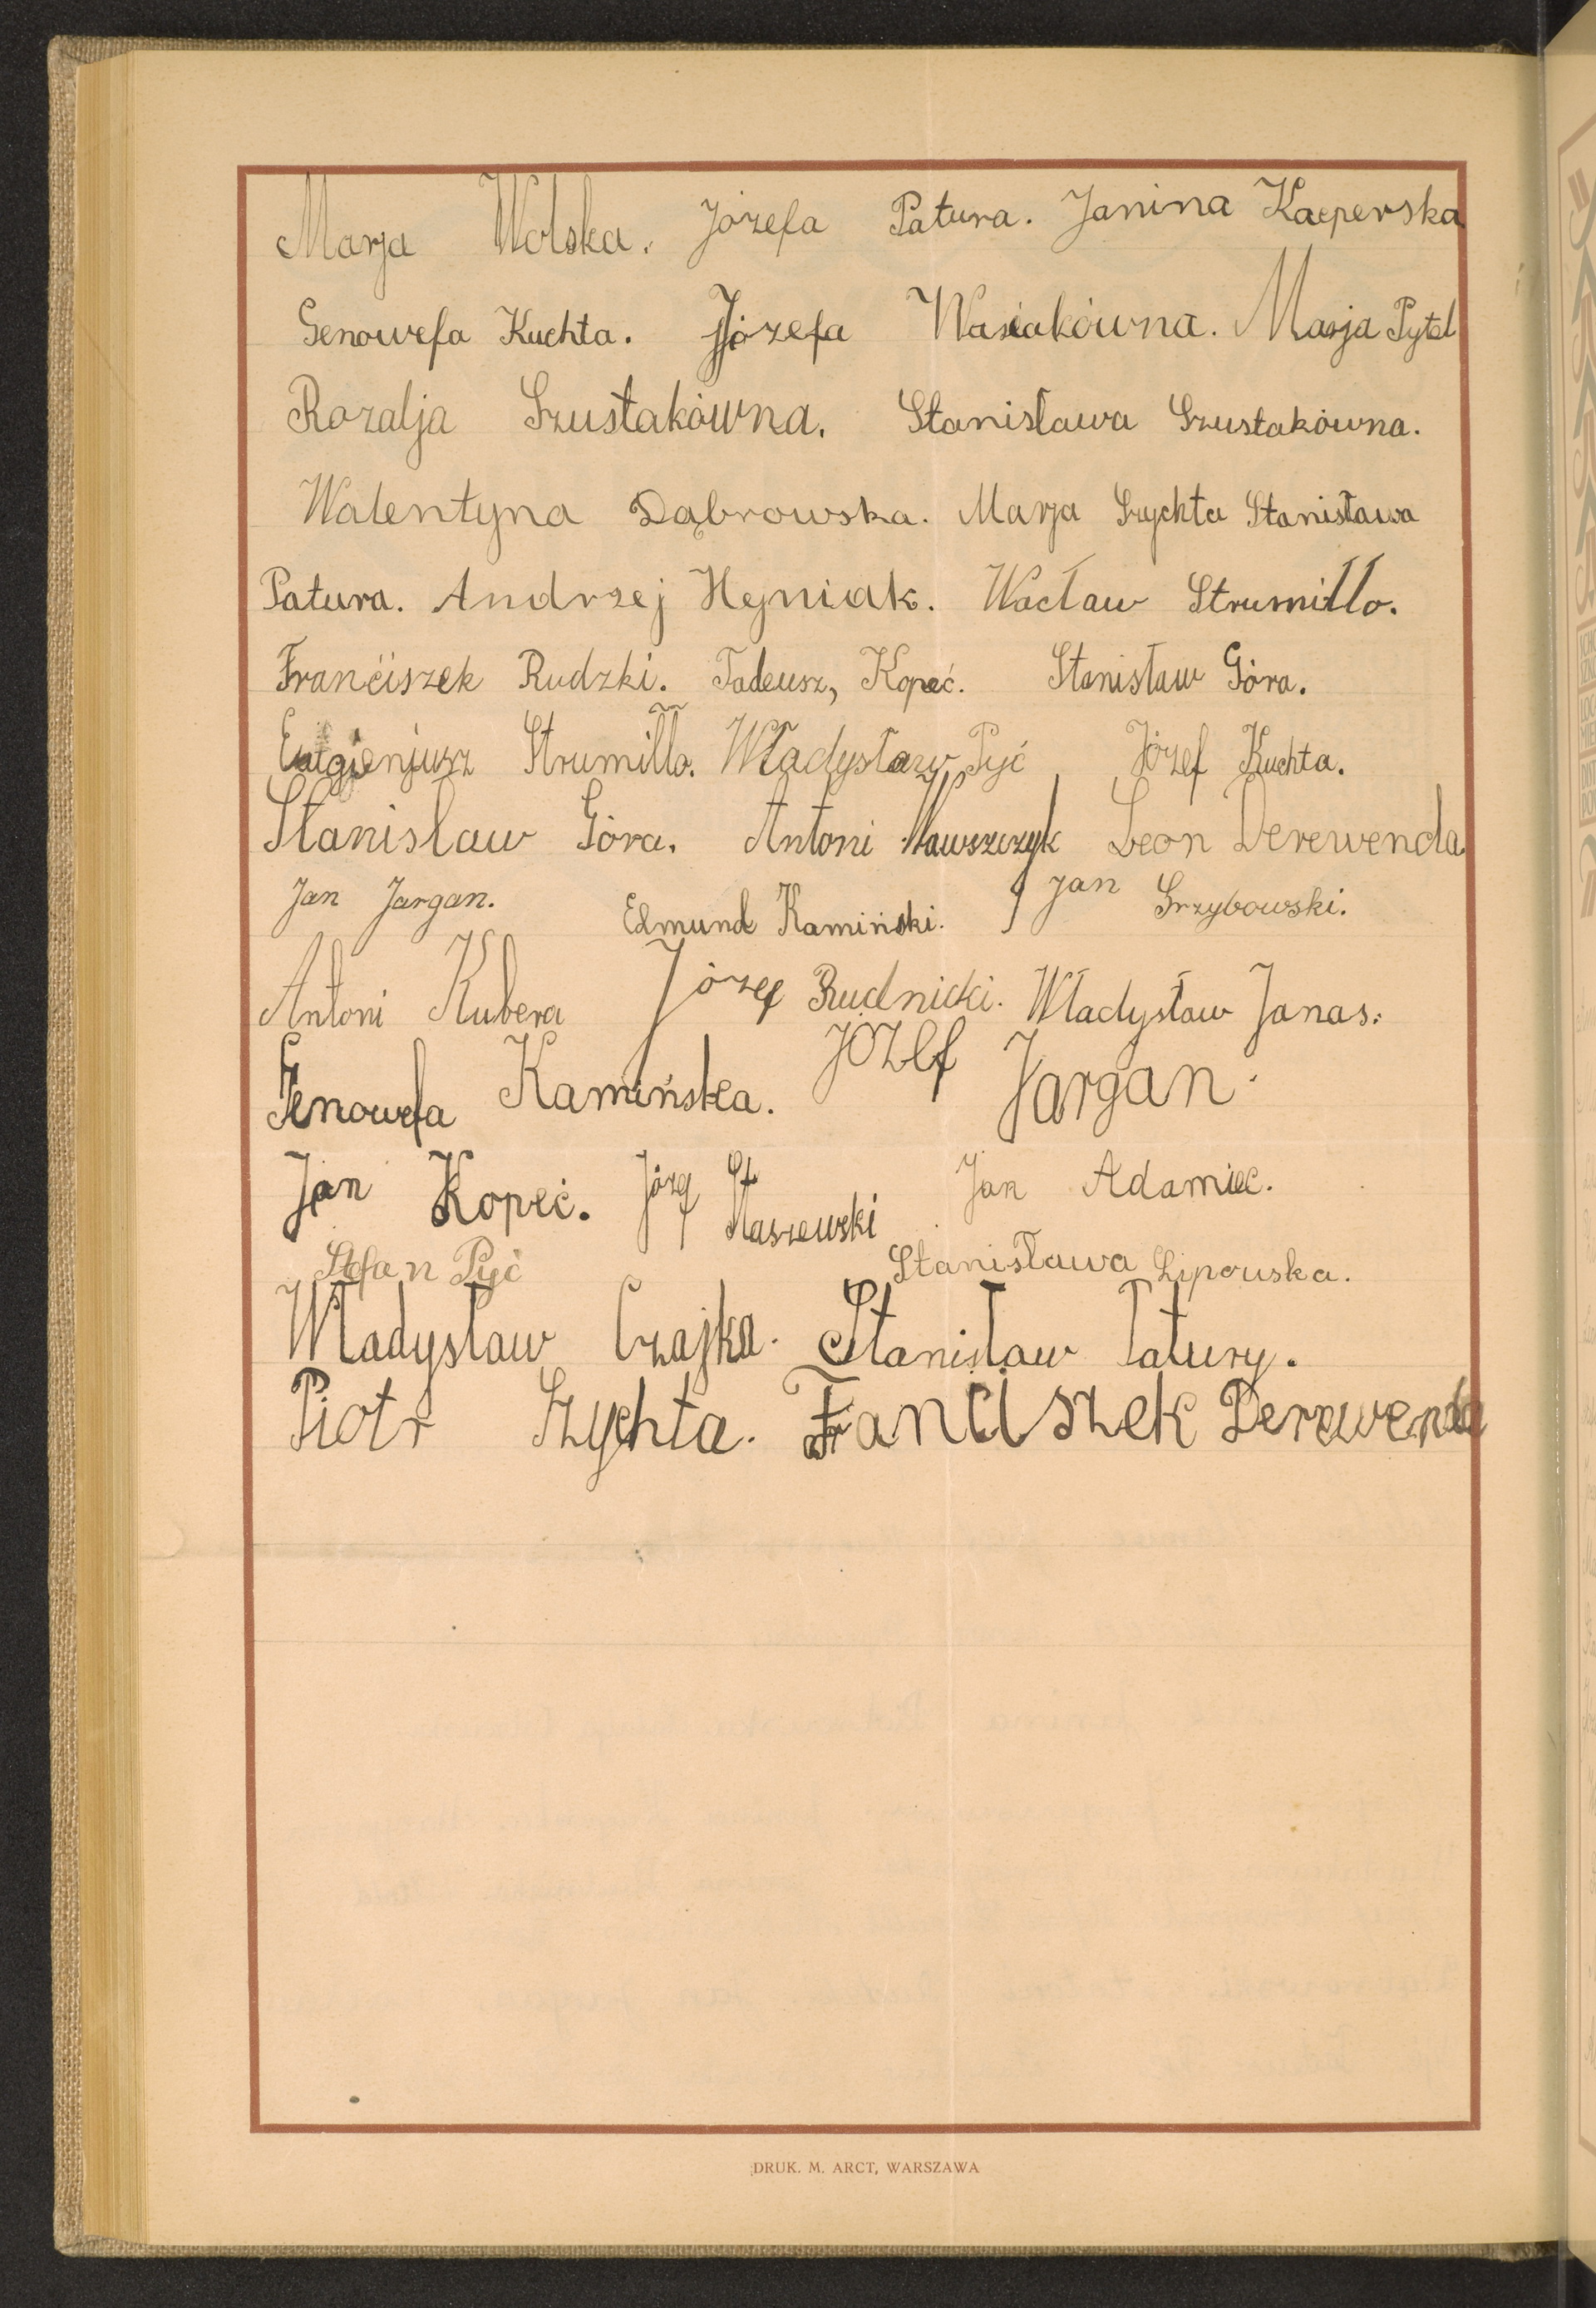 Marja Wolska. Józefa Patura. Janina Kacperska
Genowefa Kuchta. Józefa Wasiakówna. Marja Pytel
Rozalja Szustakówna. Stanisława Szustakówna.
Walentyna Dąbrowska. Marja Szychta Stanisława
Patura. Andrzej Hejniak. Wacław Strumiłło.
Franciszek Rudzki. Tadeusz, Kopeć. Stanisław Góra.
Eugienjusz Strumiłło. Władysław Pyć Józef Kuchta.
Stanisław Góra. Antoni Leon Derewenda
Jan Jargan. Edmund Kamiński. Jan Grzybowski.
Antoni Kubera Józef Rudnicki. Władysław Janas.
Genowefa Kamińska. Józef Jargan.
Jan Kopeć. Józef Staszewski Jan Adamiec.
Stefan Pyć Stanisława Lipowska.
Władysław Czajka. Stanisław Patury.
Piotr Szychta. Franciszek Derewenda
DRUK. M. ARCT, WARSZAWA